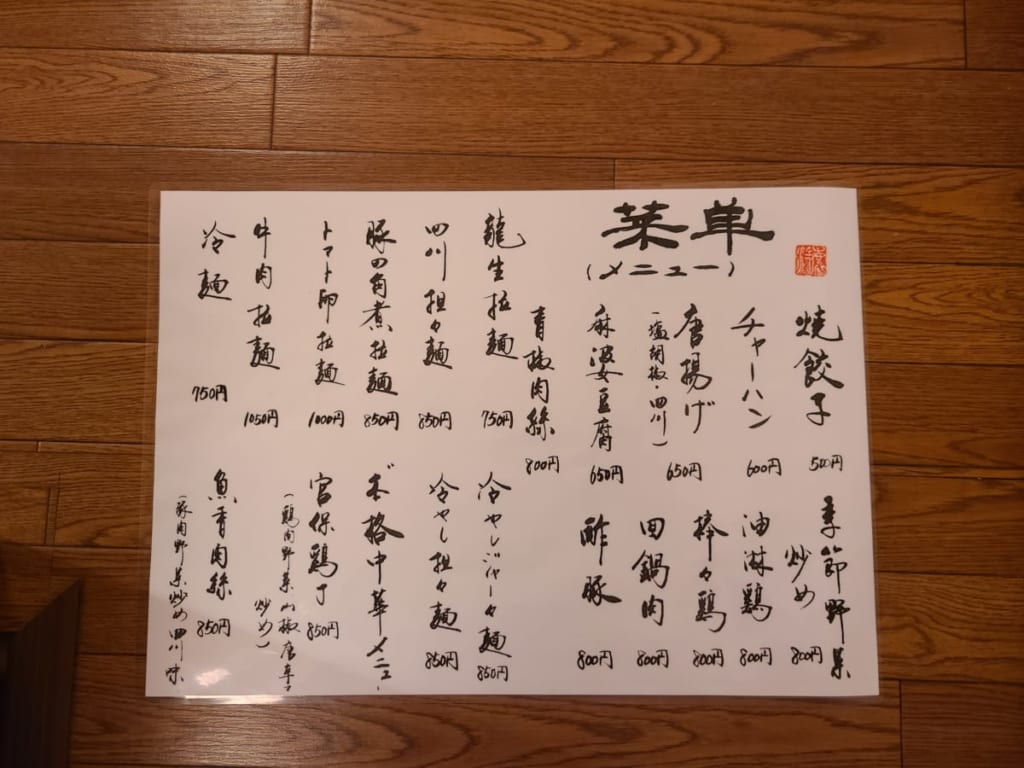 菜単
(メニュー)
焼餃子
500円
チャーハン
600円
唐揚げ
(塩胡椒・四川)
650円
麻婆豆腐
650円
青椒肉絲
800円
季節野菜
炒め
800円
油淋鶏
800円
棒々鶏
800円
回鍋肉
800円
酢豚
800円
龍生拉麺
750円
四川担々麺
850円
豚の角煮拉麺
850円
トマト卵拉麺
1000円
牛肉拉麺
1050円
冷麺
750円
冷やしジャー々麺
850円
冷やし担々麺
850円
本格中華メニュー
宮保鶏丁
850円
(鶏肉野菜山椒唐辛子
炒め)
魚香肉絲
850円
(豚肉野菜炒め四川味